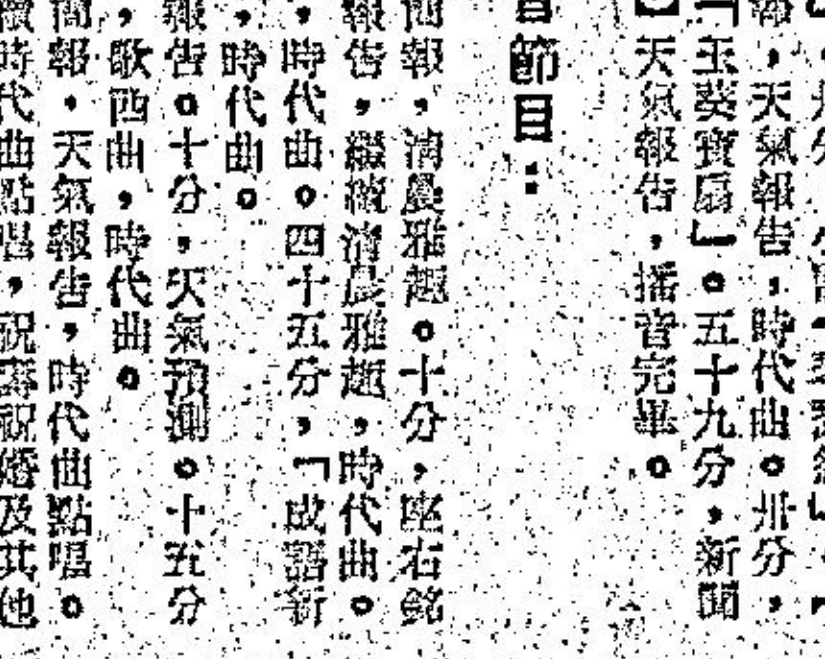 ，卅分
報，天氣報告，時代曲。卅分，
「玉葵寶扇」。五十九分，新聞
】天氣報告，播音完畢。
音節目：
簡報，清晨雅趣。十分，座右銘
報告，繼續清晨雅趣，時代曲。
，時代曲。四十五分，「成語新
，時代曲。
報告。十分，天氣預測。十五分
，歌西曲，時代曲。
簡報。天氣報告，時代曲點唱。
續時代曲點唱，祝壽祝婚及其他